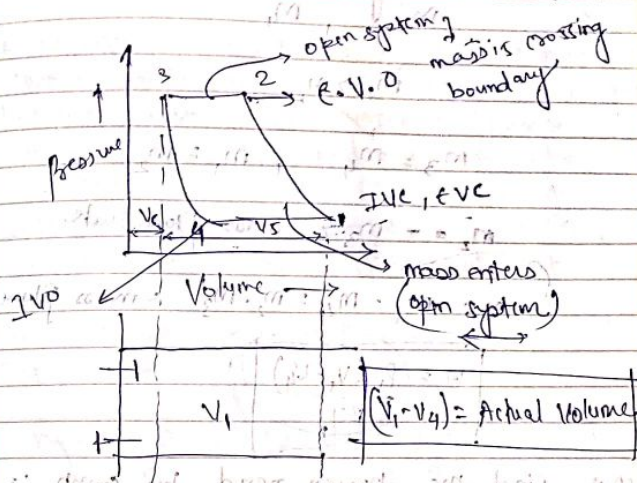 open system,
mass is crossing
boundary
3
2
E.V.O
Pressure
IVC, EVC
Vc
4
Vs
mass enters
(open system)
IVO
Volume
V1
(V1-V4) = Actual Volume